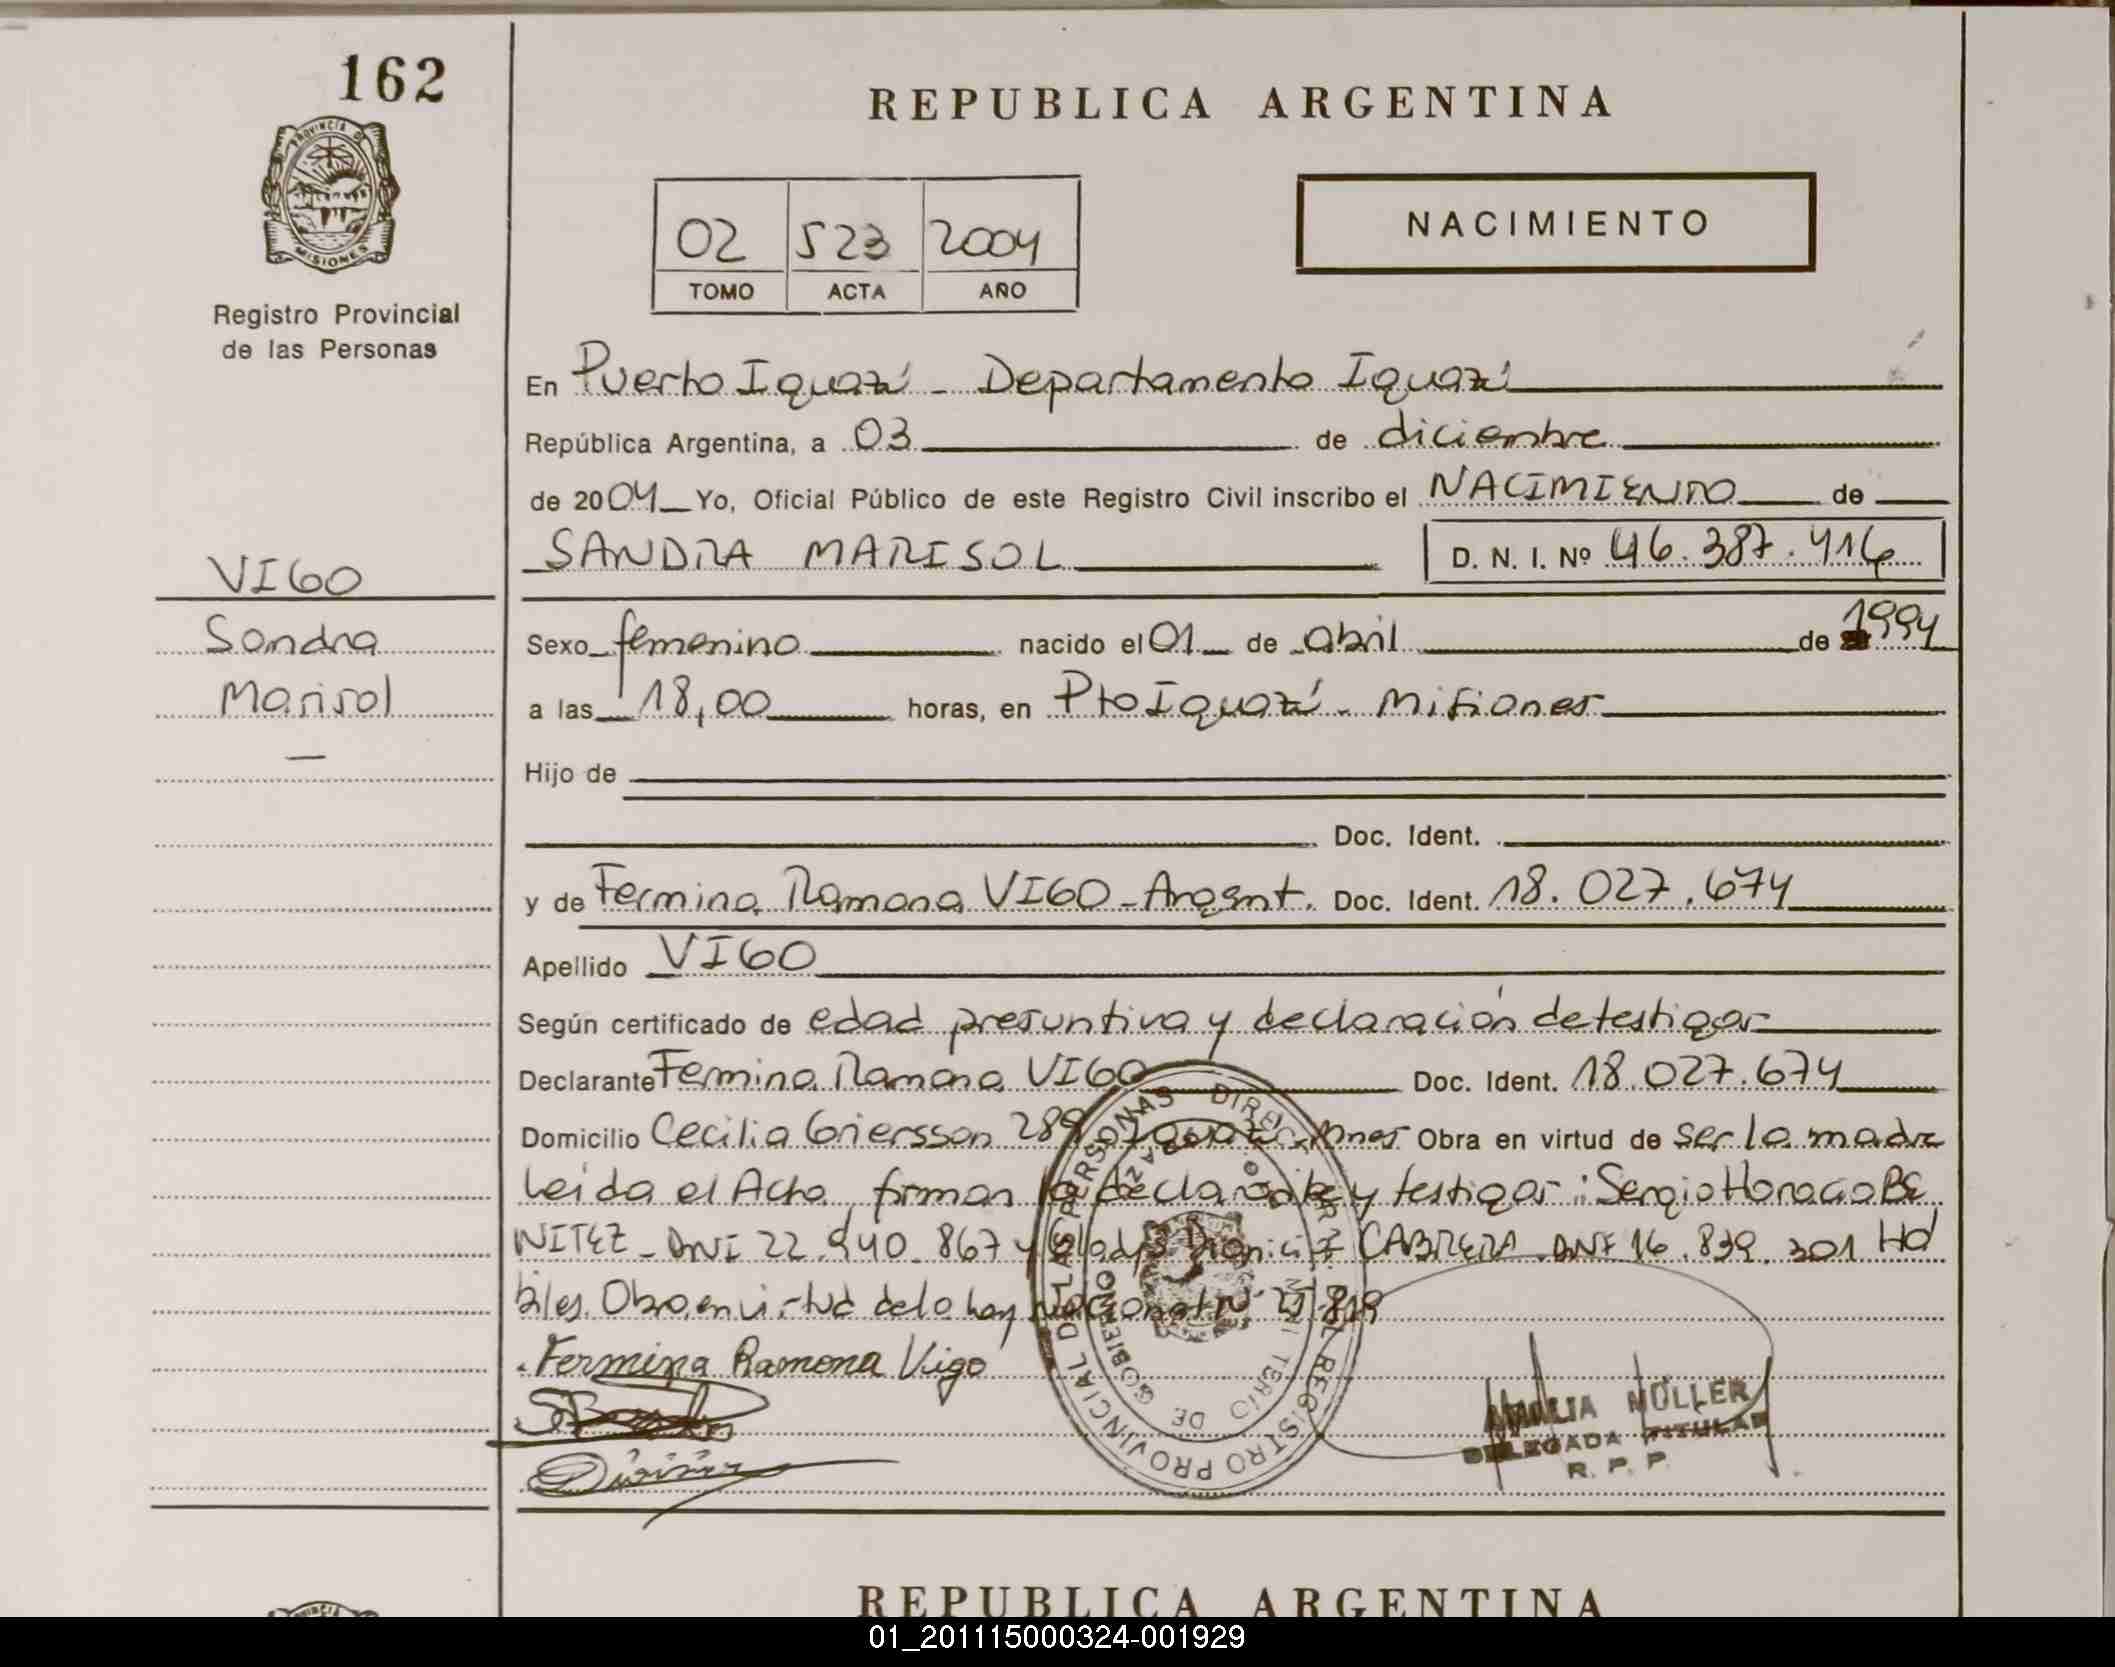 162
REPUBLICA ARGENTINA
PROVINCIA DE MISIONES
Registro Provincial
de las Personas
02 523 2004
TOMO ACTA AÑO
NACIMIENTO
En Puerto Iguazú - Departamento Iguazú
República Argentina, a 03 de diciembre
de 2004 Yo, Oficial Público de este Registro Civil inscribo el NACIMIENTO de
SANDRA MARISOL D. N. I. Nº 46.387.416
VIGO
Sandra
Marisol
Sexo femenino nacido el 01 de abril de 1994
a las 18,00 horas, en Pto Iguazú - Misiones
Hijo de
Doc. Ident.
y de Fermina Ramona VIGO - Argent. Doc. Ident. 18.027.674
Apellido VIGO
Según certificado de edad presuntiva y declaración de testigos
Declarante Fermina Ramona VIGO Doc. Ident. 18.027.674
Domicilio Cecilia Griersson 289 Mnes Obra en virtud de ser la madre
Leída el Acta, firman la declarante y testigos: Sergio Horacio BE
NITEZ - DNI 22.940.867 y CABRERA DNI 16.839.301 Há
biles. Obra en virtud de la Ley Nacional Nº 25.819
Fermina Ramona Vigo
DIRECCION GRAL REGISTRO PROVINCIAL DE LAS PERSONAS
MINISTERIO DE GOBIERNO
AMALIA MÜLLER
DELEGADA TITULAR
R. P. P.
REPUBLICA ARGENTINA
01_201115000324-001929